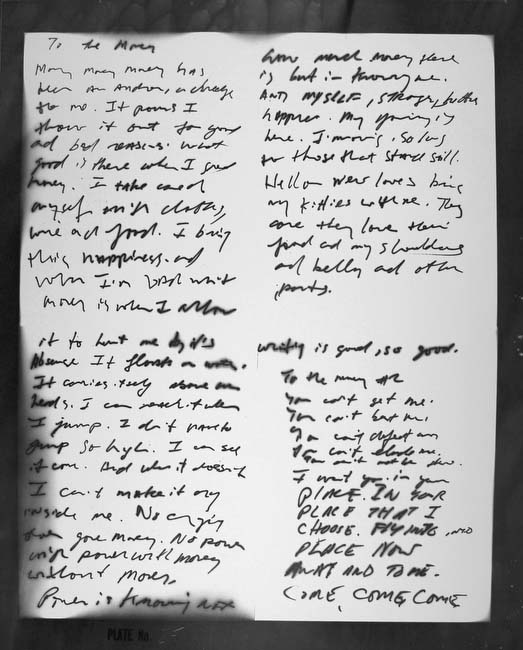 To the Money
Money money money has
been an        , a charge
to me. It pours I
throw it out for good
ad bad reasons. What
good is there when I spend
money. I take care of
myself with clothes,
wine ad food. I bring
this happiness. ad
when I'm             
money is when I allow
it to hurt me by it's
absence It floats on water.
It carries itself above our
heads. I can reach it when
I jump. I don't have to
jump so high. I can see
it come. And when it doesn't
I can't make it cry
inside me. No crying
over gone money. No power
with power with money
without money.
Power is knowing not
how much money there
is but in knowing me.
And myself, stronger, better
happier. My      is
here. I'm moving. So long
for those that stand still.
Hello new loves bring
my kitties with me. They
care they love their
food ad my shoulders
ad belly ad other
parts.
writing is good, so good.
To the money #2
You can't get me.
You can't beat me.
You can't defeat me
You can't        me
You can't not be here.
I want you in your
PLACE. IN YOUR
PLACE THAT I
CHOOSE. FLY INTO,
PLACE NOW
AWAY AND TO ME.
COME, COME COME
PLATE No.